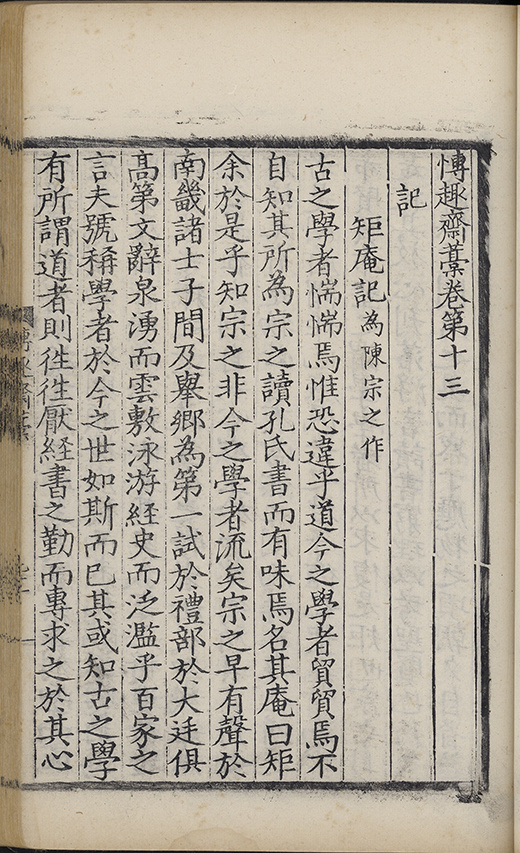 博趣齋藁卷第十三
記
矩庵記為陳宗之作
古之學者惴惴焉惟恐違乎道今之學者貿貿焉不
自知其所為宗之讀孔氏書而有味焉名其庵曰矩
余於是乎知宗之非今之學者流矣宗之早有聲於
南畿諸士子間及舉鄉為第一試於禮部於大廷俱
髙第文辭泉湧而雲敷泳游經史而泛濫乎百家之
言夫號稱學者於今之世如斯而已其或知古之學
有所謂道者則徃徃厭経書之勤而專求之於其心